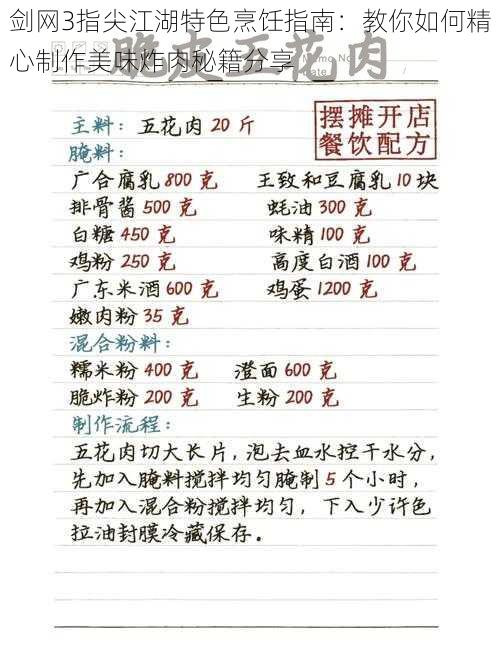 剑网3指尖江湖特色烹饪指南：教你如何精
心制作美味炸肉秘籍分享
脆皮五花肉
Memo No
Date
摆摊开店
餐饮配方
主料：五花肉20斤
腌料：
广合腐乳800克 王致和豆腐乳10块
排骨酱500克 蚝油300克
白糖450克 味精100克
鸡粉250克 高度白酒100克
广东米酒600克 鸡蛋1200克
嫩肉粉35克
混合粉料：
糯米粉400克 澄面600克
脆炸粉200克 生粉200克
制作流程：
五花肉切大长片，泡去血水控干水分，
先加入腌料搅拌均匀腌制5个小时，
再加入混合粉搅拌均匀，下入少许色
拉油封膜冷藏保存。